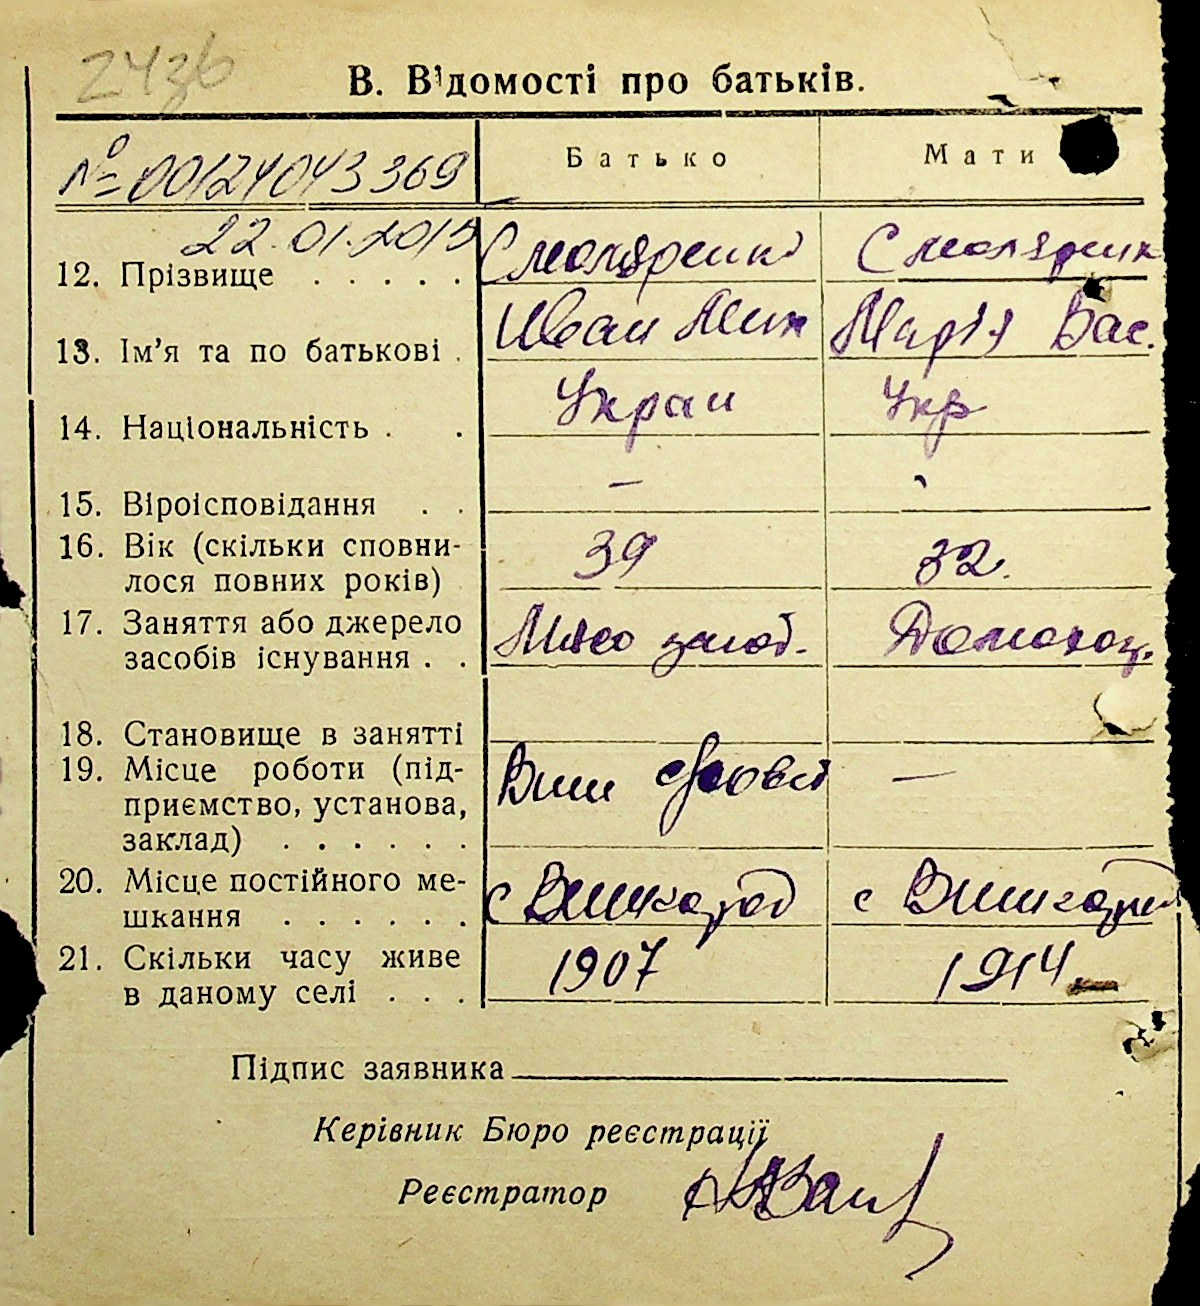 243б
В. Відомості про батьків.
№ 00124043369
Батько Мати
22.01.2015
12. Прізвище . . . . . Смоляренко Смоляренк
13. Ім'я та по батькові . Иван Мих Марія Вас.
14. Національність . . Украи Укр
15. Віроісповідання . . —
16. Вік (скільки сповни-
лося повних років) 39 32.
17. Заняття або джерело
засобів існування . . Мясо загот. Домохоз.
18. Становище в занятті
19. Місце роботи (під-
приємство, установа, Виш —
заклад) . . . . . .
20. Місце постійного ме-
шкання . . . . . . с Вишгород с Вишгород
21. Скільки часу живе
в даному селі . . . 1907 1914
Підпис заявника
Керівник Бюро реєстрації
Реєстратор